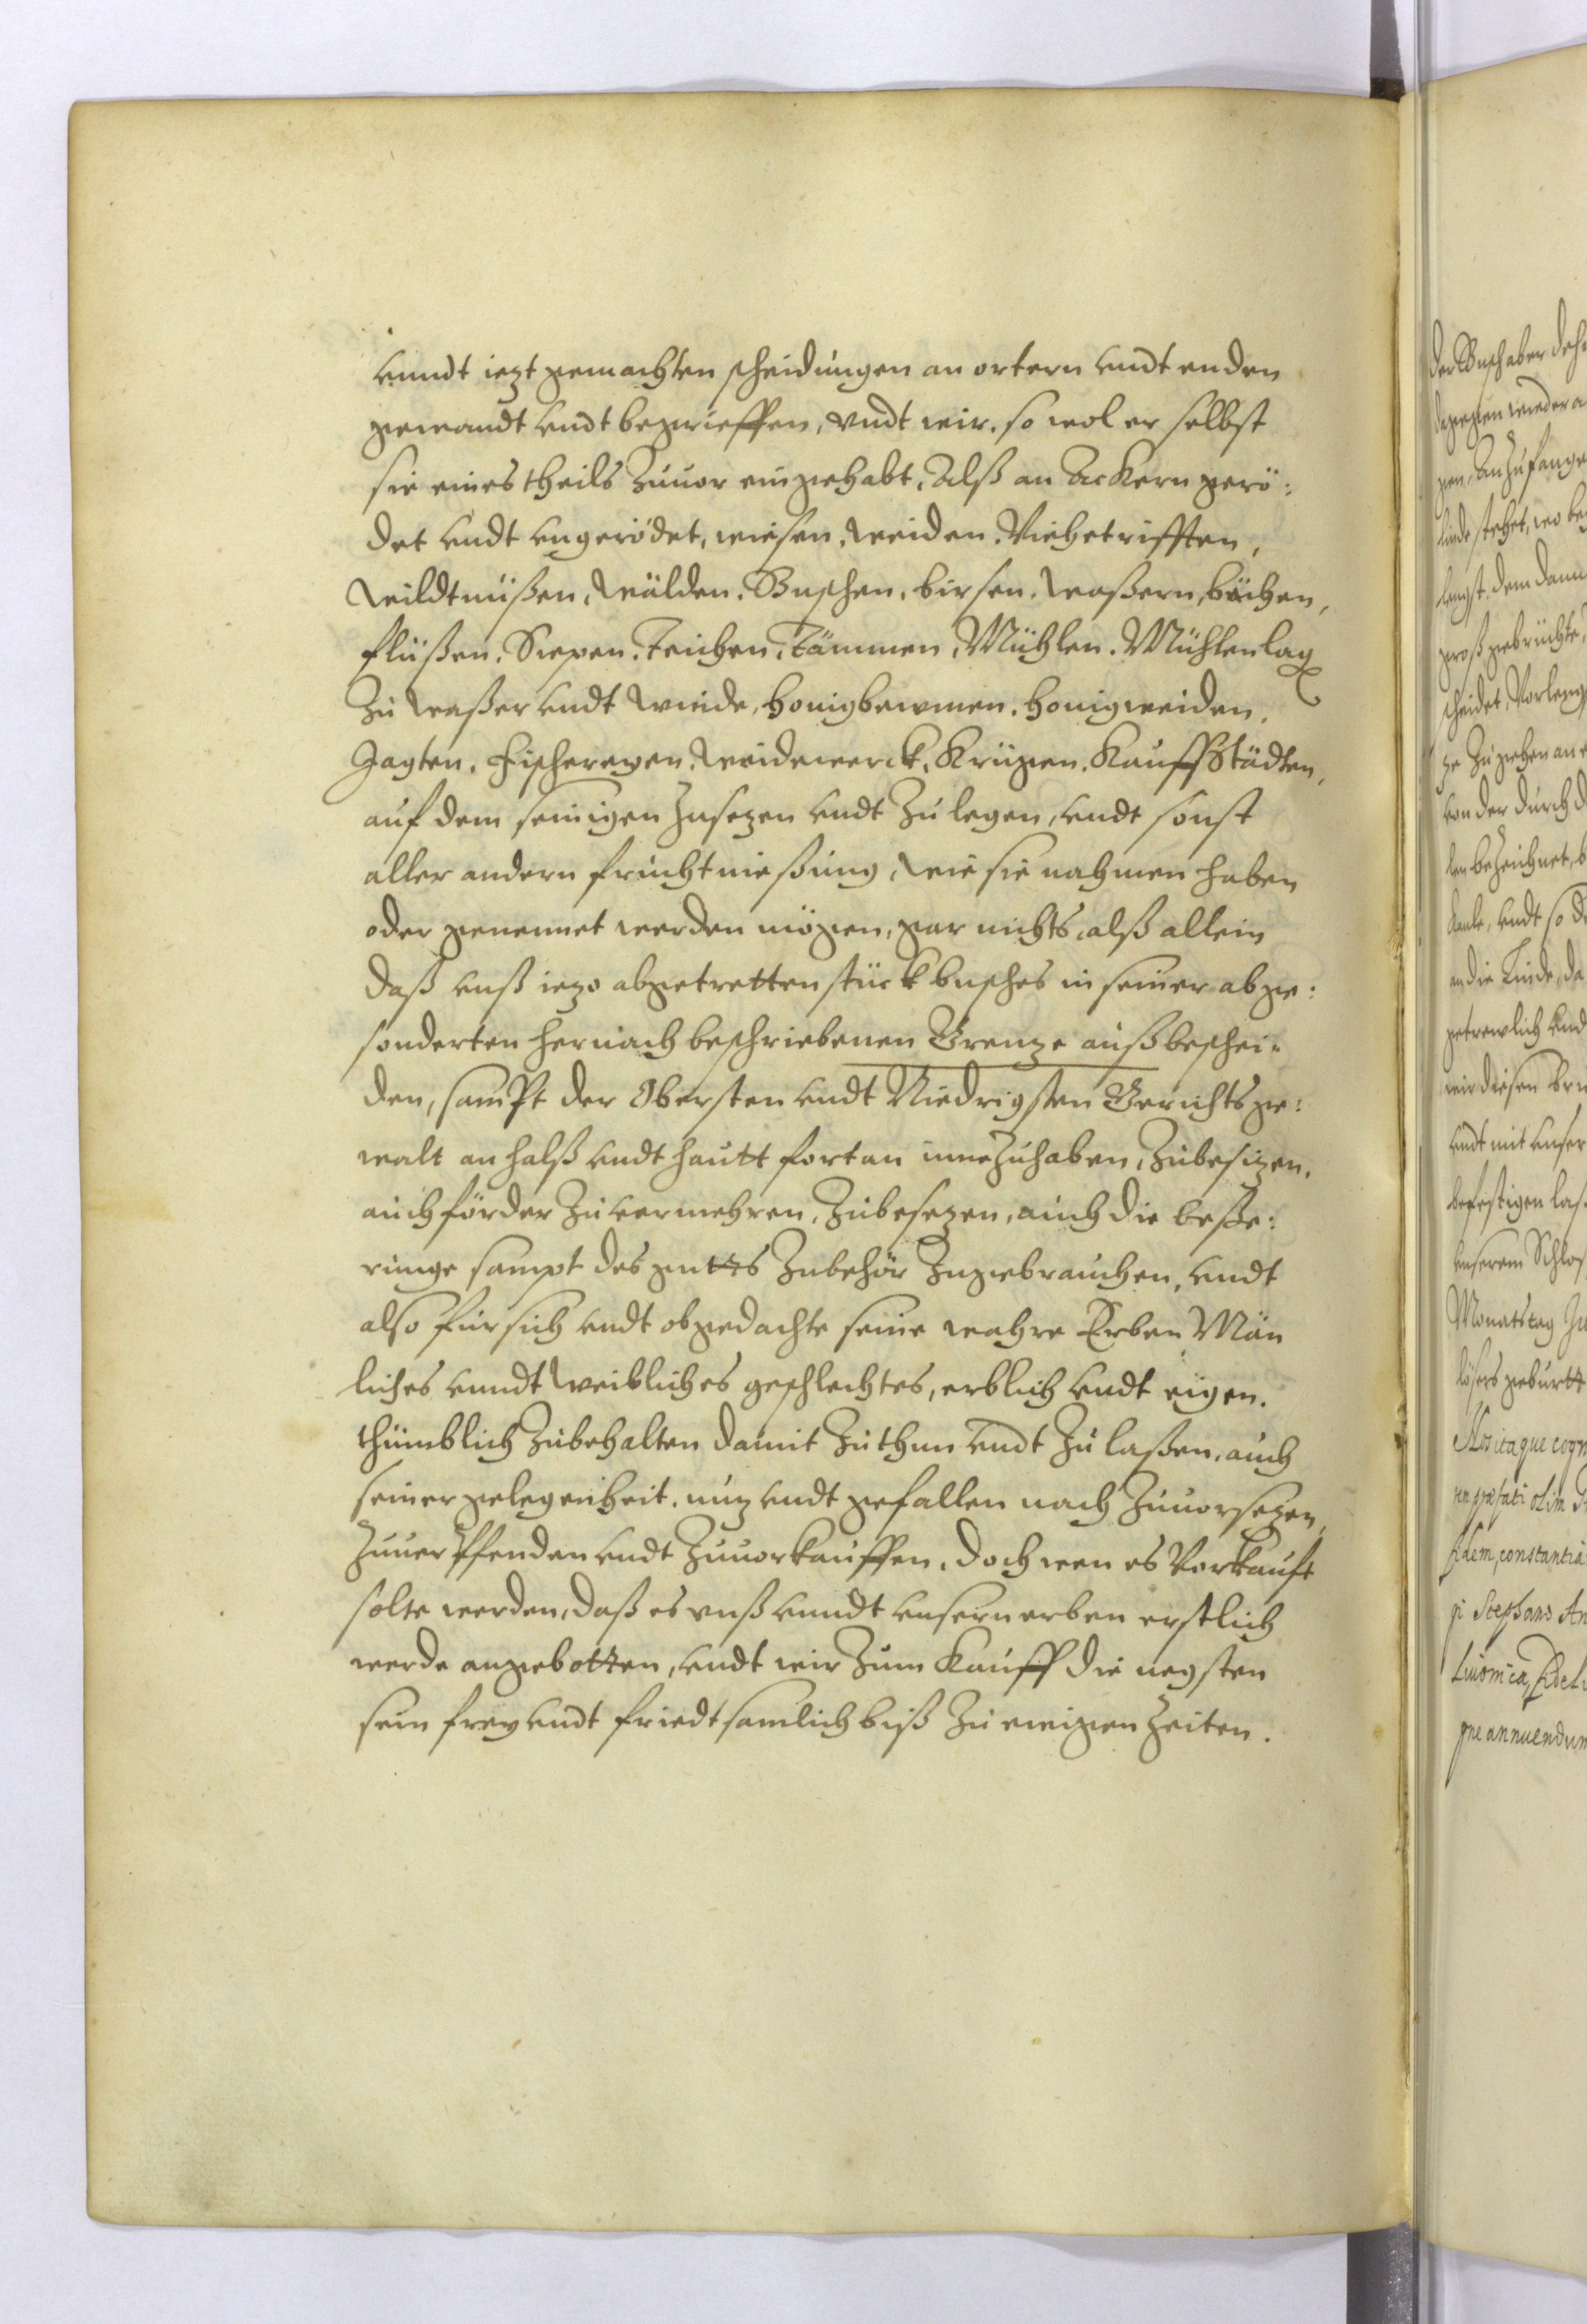 vnndt iezt gemachten scheidungen an ortern vndt enden
gewandt vndt begrieffen, vndt wir, so wol er selbst
sie eines theils zuuor ein gehabt, Alß an Ackern gerö:
det vndt vngerödet, wiesen, weiden, Viehetrifften,
Wildtnüßen, Wälden, Buschen, birsen, Waßern, bächen,
flüßen, Siepen, Teichen, Tämmen, Mühlen, Mühlenlag
zu Waßer vndt Winde, honigbewmen, honigweiden,
Jagten, Fischereyen, Weidewerck, Krügen, Kauff Städten,
auf dem seinigen zusezen vndt zu legen, vndt sonst
aller andern fruchtnießung, wie sie nahmen haben
oder genennet werden mögen, gar nichts, alß allein
daß vnß iezo abgetretten stück busches in seiner abge:
sonderten hernach beschriebenen Grenze außbeschei:
den, sampt der Obersten vndt Niedrigsten Gerichts ge:
walt an halß vndt hautt fortan inne zuhaben, zubesizen,
auch förder zu vermehren, zubesezen, auch die beße:
runge sampt des guttes zubehör zugebrauchen, vndt
also für sich vndt obgedachte seine wahre Erben Män
liches vnndt Weibliches geschlechtes, erblich vndt eigen.
thümblich zubehalten damit zu thun vndt zu laßen, auch
seiner gelegenheit, nuz vndt gefallen nach zuuorsezen,
zuuerpfenden vndt zuuorkauffen, doch wen es Vorkauft
solte werden, daß es vnß vnndt vnsern erben erstlich
werde angebotten, vndt wir zum Kauff die negsten
sein frey vndt friedtsamlich biß zu ewigen zeiten.